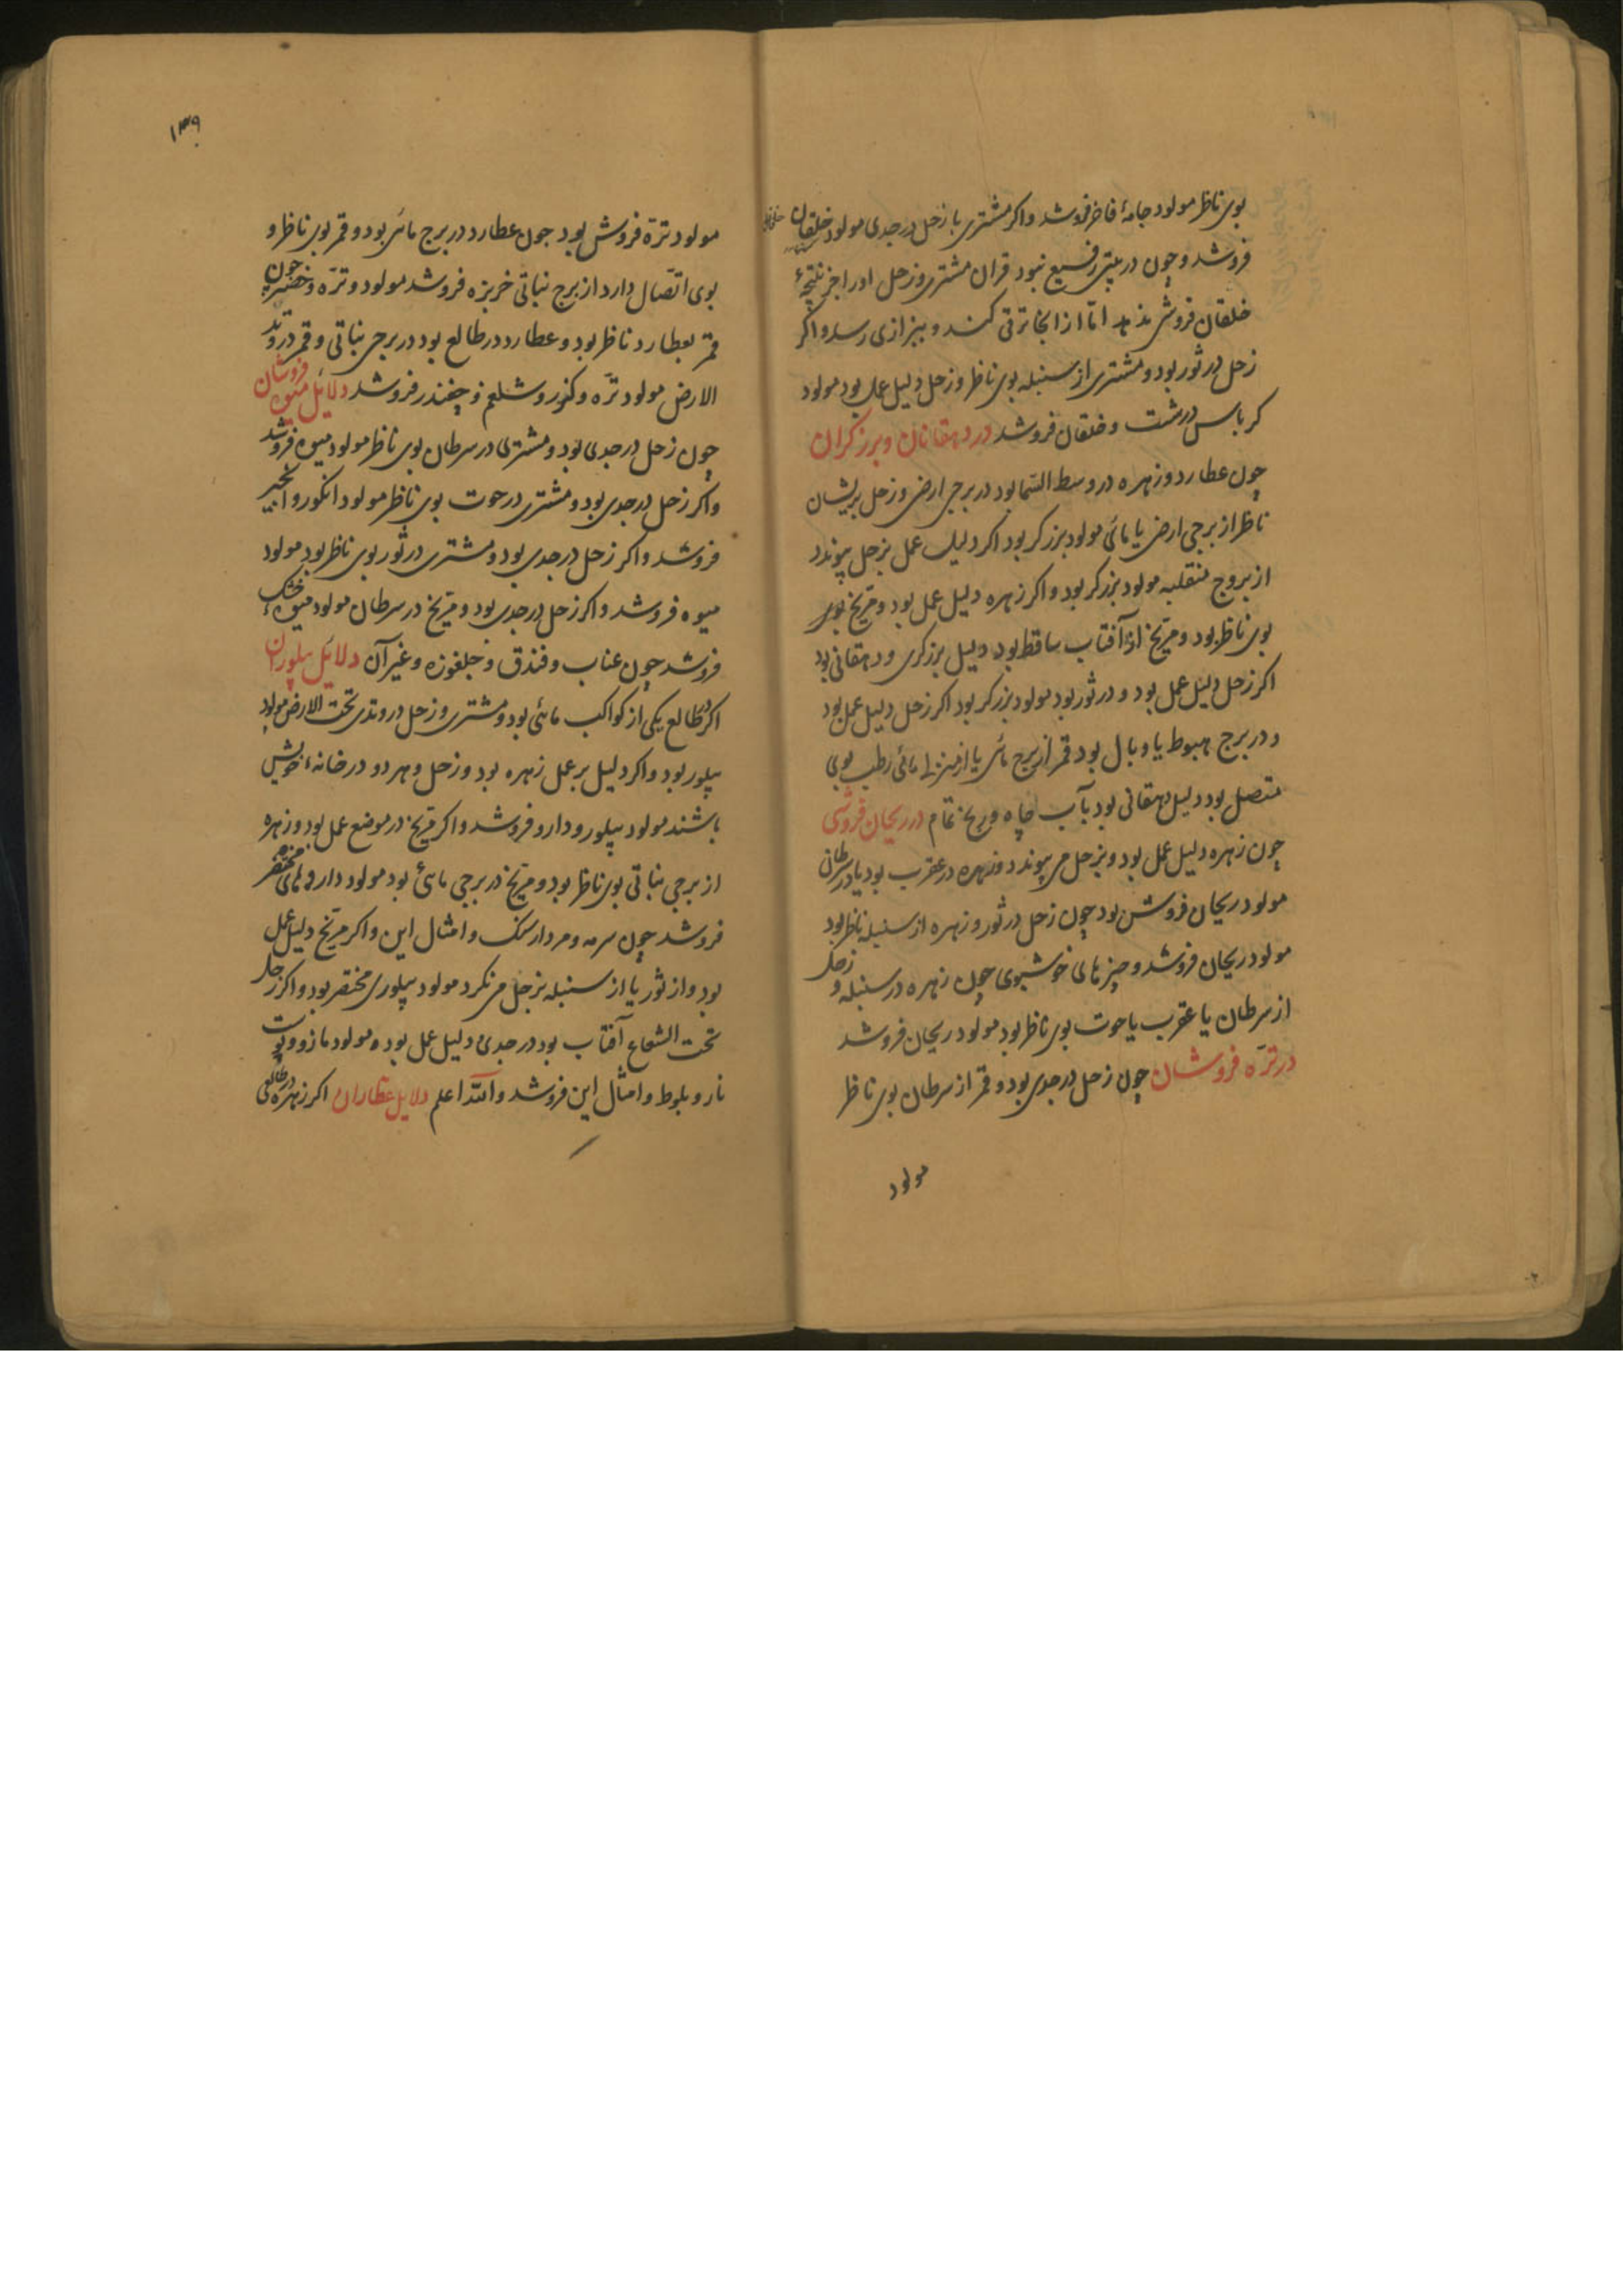 بوی ناظر مولود جامهٔ فاخر فروشد و اکر مشتری با زحل در جدی مولود خلقان
فروشد و چون در بیتی رفیع نبود قران مشتری و زحل او را جز نتیجهٔ
خلقان فروشی ندهد امّا از انجا ترقی کند و ببزازی رسد و اکر
زحل در ثور بود و مشتری از سنبله بوی ناظر و زحل دلیل عمل بود مولود
کرباس درشت و خلقان فروشد در دهقانان و برزکران
چون عطارد و زهره در وسط السّما بود در برجی ارضی و زحل بریشان
ناظر از برجی ارضی یا مائی مولود برزکر بود اکر دلیل عمل بزحل پیوندد
از بروج منقلبه مولود برزکر بود و اکر زهره دلیل عمل بود و مریخ بوی
بوی ناظر بود و مریخ از آفتاب ساقط بود دلیل برزکری و دهقانی بود
اکر زحل دلیل عمل بود و در ثور بود مولود برزکر بود اکر زحل دلیل عمل بود
و در برج هبوط یا وبال بود قمر از برج مائی یا از مائی رطب بوی
متصل بود دلیل دهقانی بود بآب چاه و تمام در ریحان فروشی
چون زهره دلیل عمل بود و بزحل می پیوندد و زهره در عقرب بود یا در سرطان
مولود ریحان فروش بود چون زحل در ثور و زهره از سنبله ناظر بود
مولود ریحان فروشد و چیزهای خوشبوی چون زهره در سنبله و زحل
از سرطان یا عقرب یا حوت بوی ناظر بود مولود ریحان فروشد
در ترّه فروشان چون زحل در جدی بود و قمر از سرطان بوی ناظر
مولود
۱۳۹
مولود ترّه فروش بود چون عطارد در برج مائی بود و قمر بوی ناظر و
بوی اتّصال دارد از برج نباتی خربزه فروشد مولود و ترّه و خضر چون
قمر بعطارد ناظر بود و عطارد در طالع بود در برجی نباتی و قمر در وتد
الارض مولود ترّه و کزر و شلغم و چغندر فروشد دلایل میوه فروشان
چون زحل در جدی بود و مشتری در سرطان بوی ناظر مولود میوه فروشد
و اکر زحل در جدی بود و مشتری در حوت بوی ناظر مولود انکور و انجیر
فروشد و اکر زحل در جدی بود و مشتری در ثور بوی ناظر بود مولود
میوه فروشد و اکر زحل در جدی بود و مریخ در سرطان مولود میوهٔ خشک
فروشد چون عناب و فندق و جلغوزه و غیر آن دلایل پیلوران
اکر در طالع یکی از کواکب مائی بود و مشتری و زحل در وتدی تحت الارض مولود
پیلور بود و اکر دلیل بر عمل زهره بود و زحل و هر دو در خانهٔ خویش
باشند مولود پیلور و دارو فروشد و اکر مریخ در موضع عمل بود و زهره
از برجی نباتی بوی ناظر بود و مریخ در برجی مائی بود مولود داروهای مختصر
فروشد چون سرمه و مردارسنک و امثال این و اکر مریخ دلیل عمل
بود و از ثور یا از سنبله بزحل می نکرد مولود پیلوری مختصر بود و اکر زحل
تحت الشعاع آفتاب بود در جدی و دلیل عمل بود مولود مازو و پوست
نار و بلوط و امثال این فروشد و اللّه اعلم دلایل عطّاران اکر زهره در طالعی